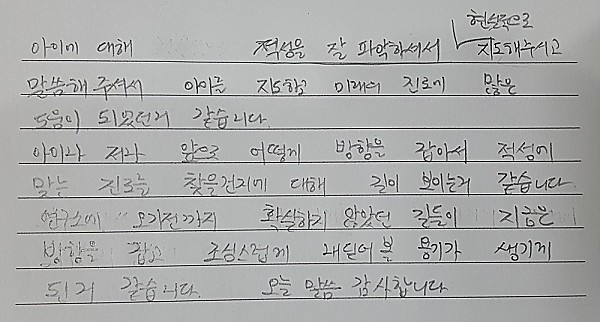 현실적으로
아이에 대해 적성을 잘 파악하셔서 지도해주시고
말씀해 주셔서 아이를 지도할 미래의 진로에 많은
도움이 되었던거 같습니다.
아이와 저와 앞으로 어떻게 방향을 잡아서 적성에
맞는 진로를 찾을건지에 대해 길이 보이는거 같습니다.
연구소에 오기전까지 확실하지 않았던 길들이 지금은
방향을 잡고 조심스럽게 내딛어 볼 용기가 생기게
된거 같습니다. 오늘 말씀 감사합니다